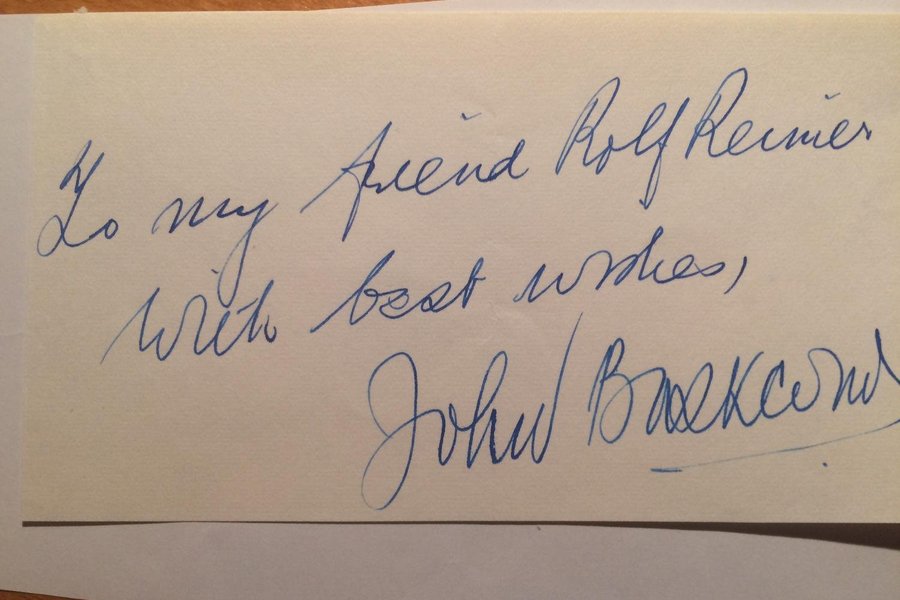 To my friend Rolf Reinier
with best wishes,
John Baskcomb